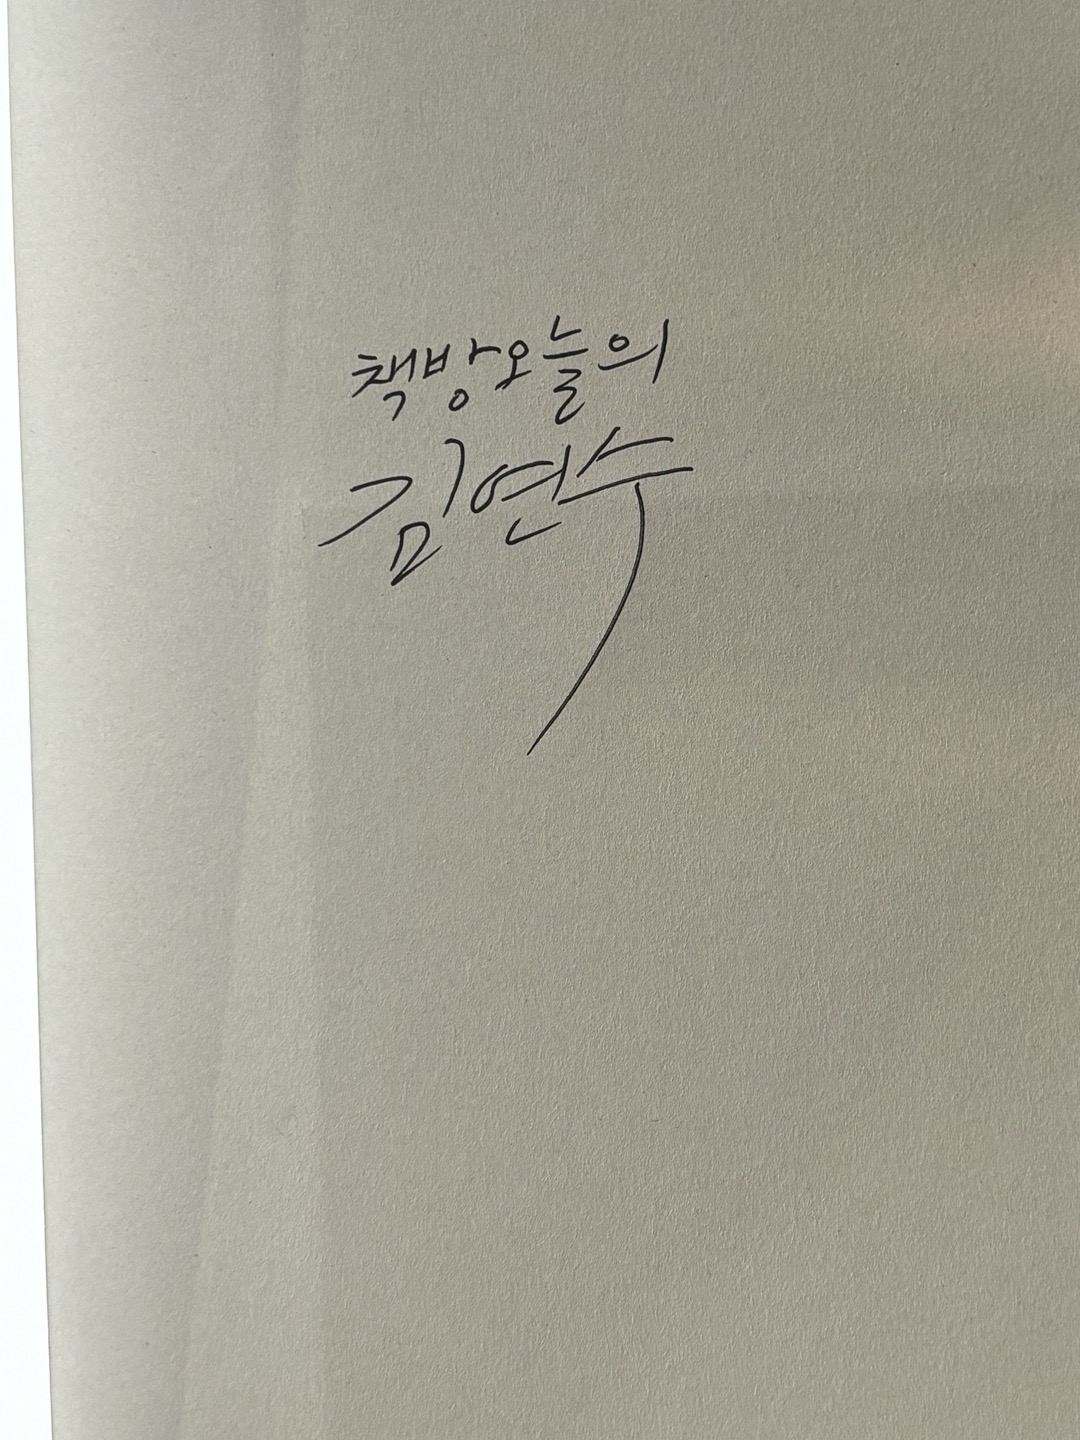 책방오늘의
김연수